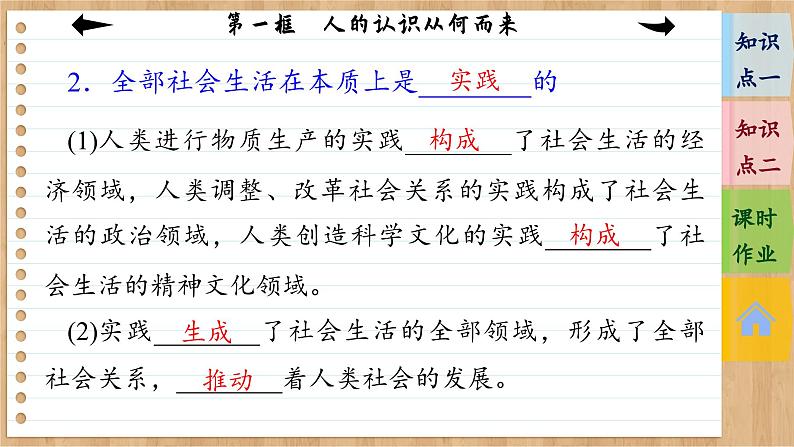 第一框 人的认识从何而来
2．全部社会生活在本质上是 实践 的
(1)人类进行物质生产的实践 构成 了社会生活的经
济领域，人类调整、改革社会关系的实践构成了社会生
活的政治领域，人类创造科学文化的实践 构成 了社
会生活的精神文化领域。
(2)实践 生成 了社会生活的全部领域，形成了全部
社会关系， 推动 着人类社会的发展。
知识
点一
知识
点二
课时
作业